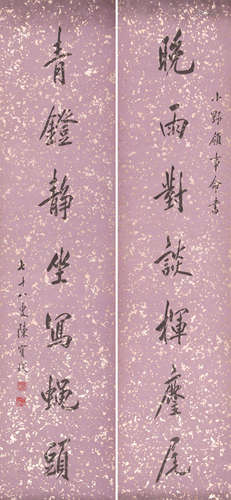 小野領事命書
晚雨對談揮麈尾
青鐙靜坐寫蝇頭
七十八叟陳寶琛